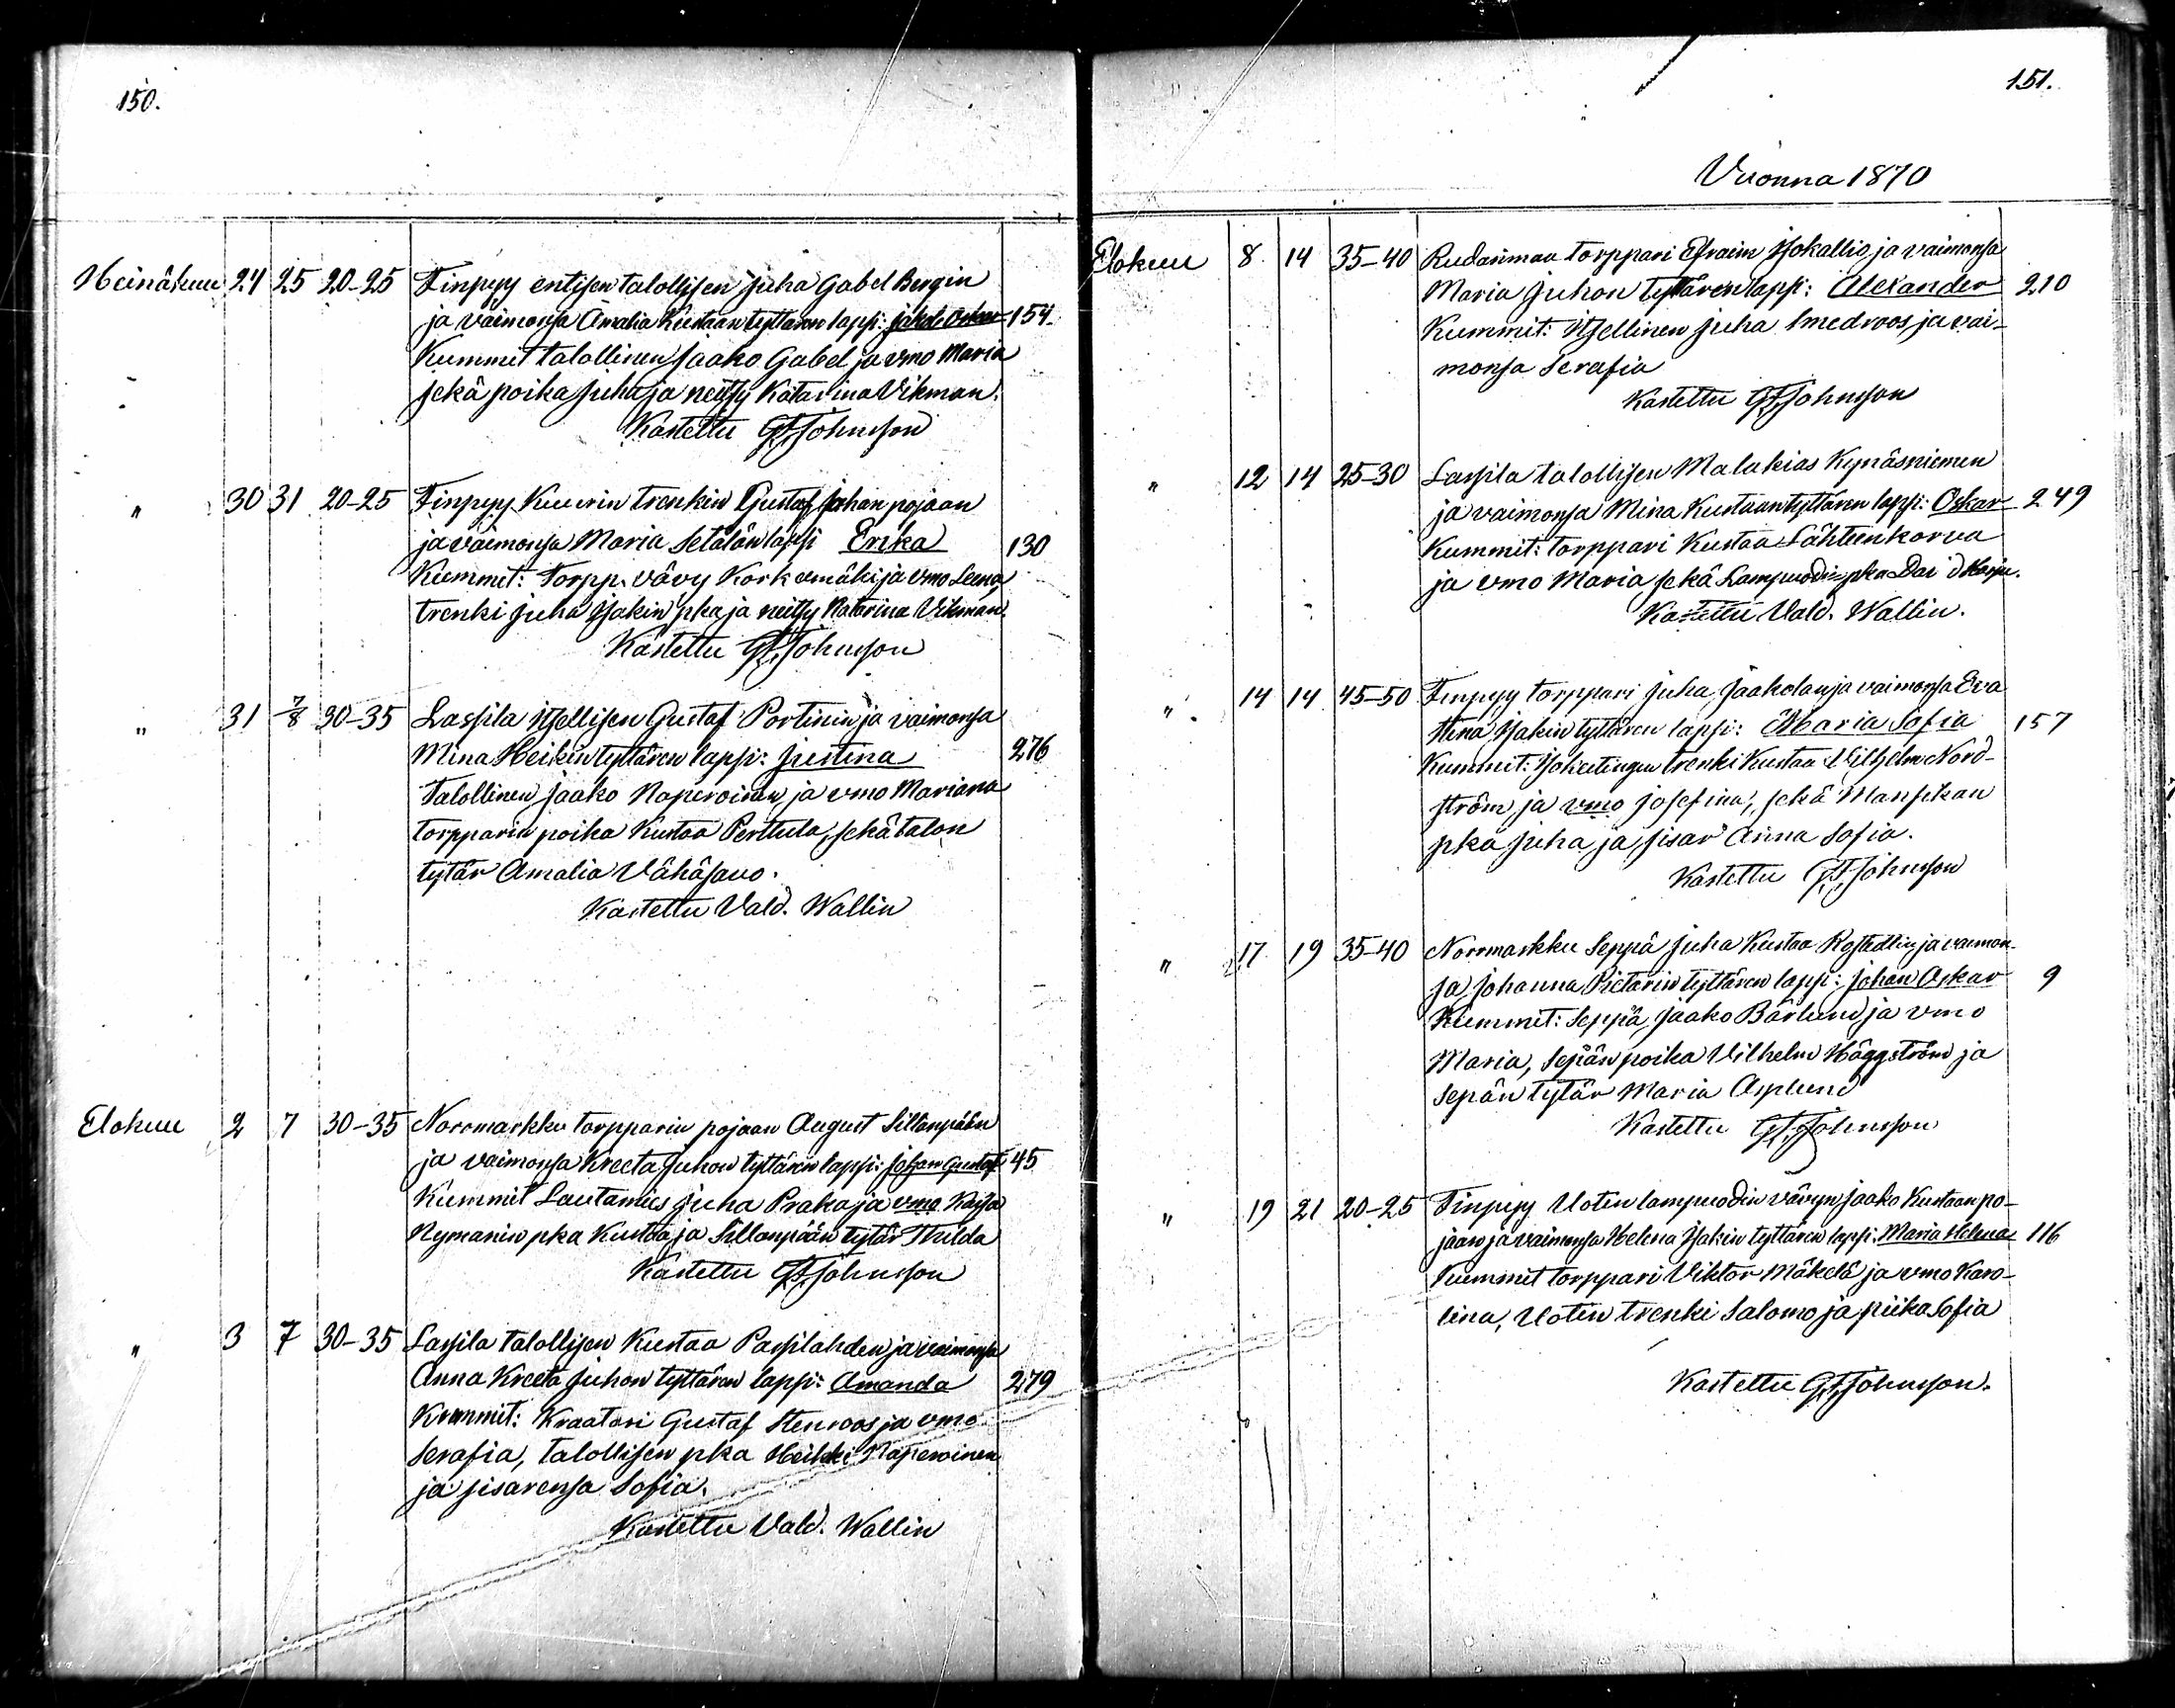 150.
Heinäkuu 24 25 20-25 Finpyy entisen talollisen Juha Gabel Bergin
ja vaimonsa Amalia Kustaan tyttären lapsi: Jakob Oskar 154.
Kummit talollinen Jaako Gabel ja vmo Maria
sekä poika Juha ja neitsy Katarina Vikman.
Kastettu G.F. Johnsson
" 30 31 20-25 Finpyy Kuurin trenkin Gustaf Johan pojaan
ja vaimonsa Maria Setälän lapsi Erika 130
Kummit: Torpp. vävy Korkeemäki ja vmo Leena,
trenki Juha Isakin pka ja neitsy Katarina Vikman.
Kastettu G.F. Johnsson
" 31 7/8 30-35 Lassila itsellisen Gustaf Portinin ja vaimonsa
Mina Heikin tyttären lapsi: Justina 276
Talollinen Jaako Naperoinen ja vmo Mariana
torpparin poika Kustaa Perttula, sekä talon
tytär Amalia Vähäsavo.
Kastettu Vald. Wallin
Elokuu 2 7 30-35 Norrmarkku torpparin pojaan August Sillanpään
ja vaimonsa Kreeta Juhon tyttären lapsi: Johan Gustaf 45
Kummit Lautamies Juha Praka ja vmo Kaisa
Nymanin pka Kustaa ja Sillanpään tytär Thilda
Kastettu G.F. Johnsson
" 3 7 30-35 Lassila talollisen Kustaa Passilahden ja vaimonsa
Anna Kreeta Juhon tyttären lapsi: Amanda 279
Kummit: Kraatari Gustaf Stenroos ja vmo
Serafia, talollisen pka Heikki Naperoinen
ja sisarensa Sofia.
Kastettu Vald. Wallin
151.
Vuonna 1870
Elokuu 8 14 35-40 Rudanmaa torppari Efraim Isokallio ja vaimonsa
Maria Juhon tyttären lapsi: Alexander 210
Kummit: itsellinen Juha Smedroos ja vai-
monsa Serafia
Kastettu G.F. Johnsson
" 12 14 25-30 Lassila talollisen Malakias Kynäsniemen
ja vaimonsa Mina Kustaantyttären lapsi: Oskar 249
Kummit: torppari Kustaa Lähteenkorva
ja vmo Maria sekä Lampuodin pka Daid Harju.
Kastettu Vald. Wallin.
" 14 14 45-50 Finpyy torppari Juha Jaakolan ja vaimonsa Eva
Stina Isakin tyttären lapsi: Maria Sofia 157
Kummit: trenki Kustaa Vilhelm Nord-
ström ja vmo Josefina, sekä
pka Juha ja sisar Anna Sofia.
Kastettu G.F. Johnsson
" 17 19 35-40 Norrmarkku Seppä Juha Kustaa Rostedtin ja vaimon-
sa Johanna Pietarin tyttären lapsi: Johan Oskar 9
Kummit: Seppä Jaako Bärlund ja vmo
Maria, Sepän poika Vilhelm Häggström ja
Sepän tytär Maria Asplund
Kastettu G.F. Johnsson
" 19 21 20-25 Finpyy Uotin lampuodin vävyn Jaako Kustaan po-
jaan ja vaimonsa Helena Isakin tyttären lapsi: Maria Helena 116
Kummit torppari Viktor Mäkelä ja vmo Karo-
lina, Uotin trenki Salomo ja piika Sofia
Kastettu G.F. Johnsson.